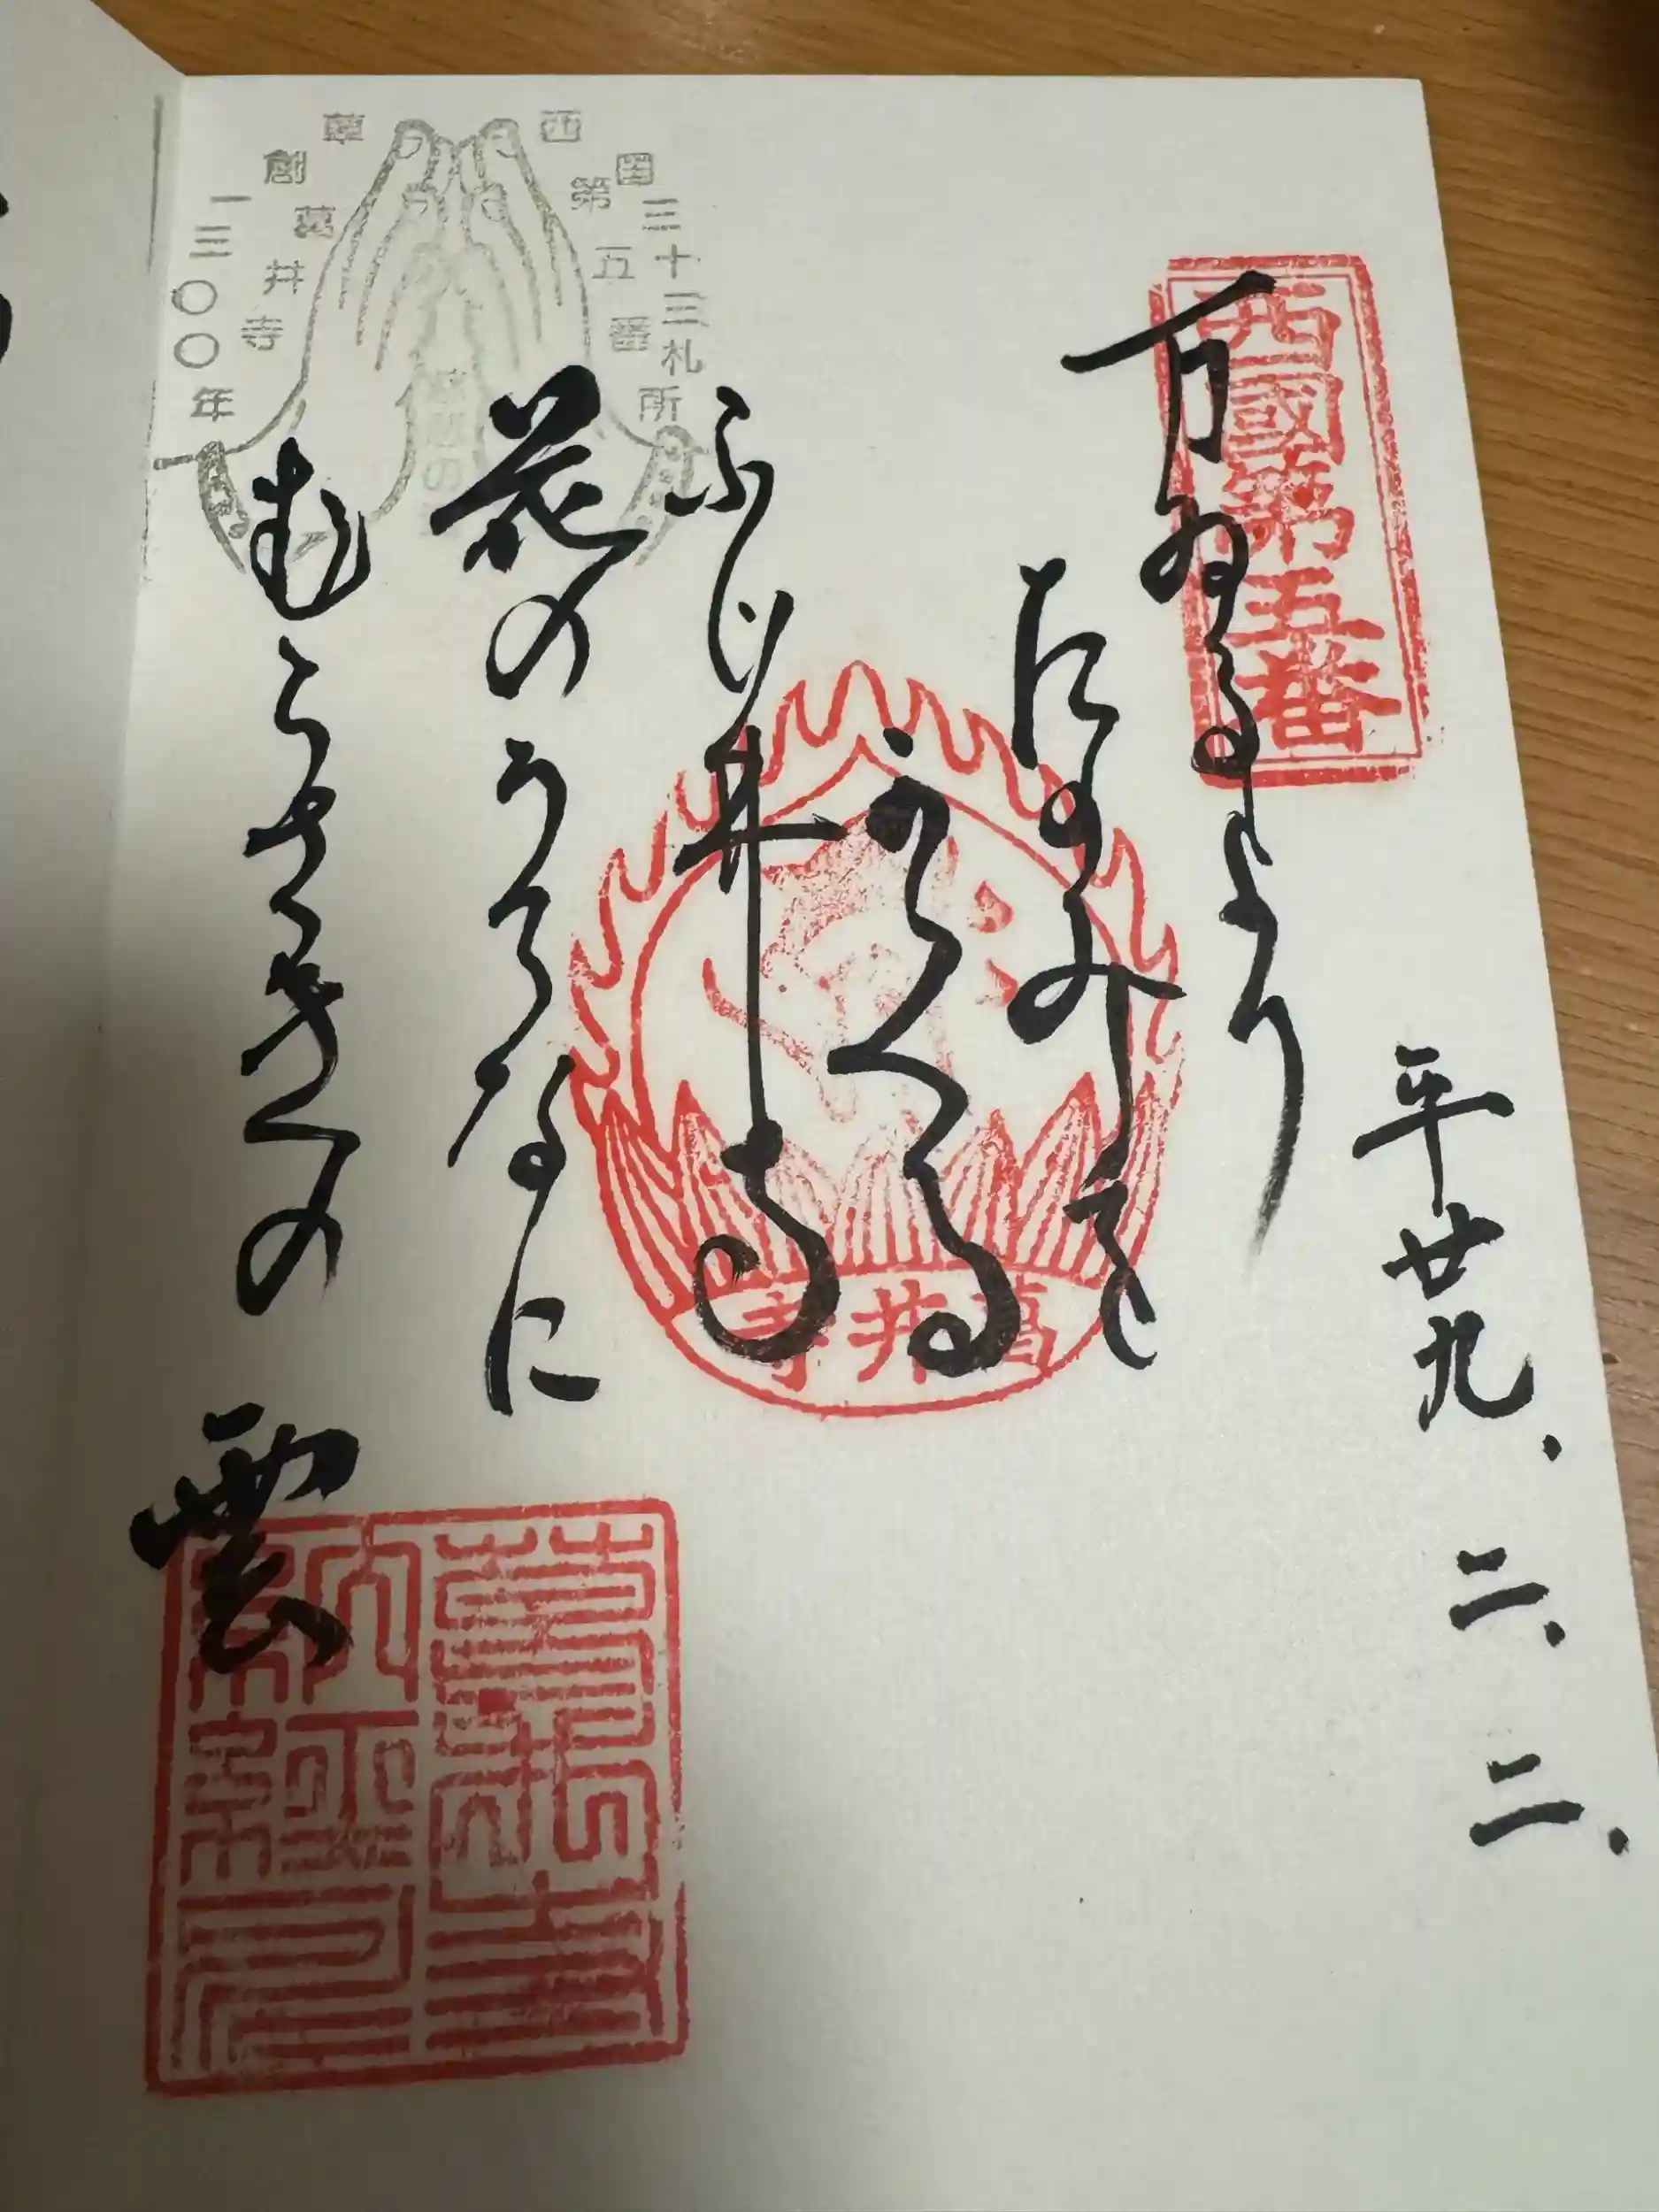 平廿九.二.二.
西國第五番
まゐるより
たのみを
かくる
ふじ井寺
花のうてなに
むらさきの
雲
葛井寺
西国三十三札所
第五番
草創一三〇〇年
葛井寺
葛井寺